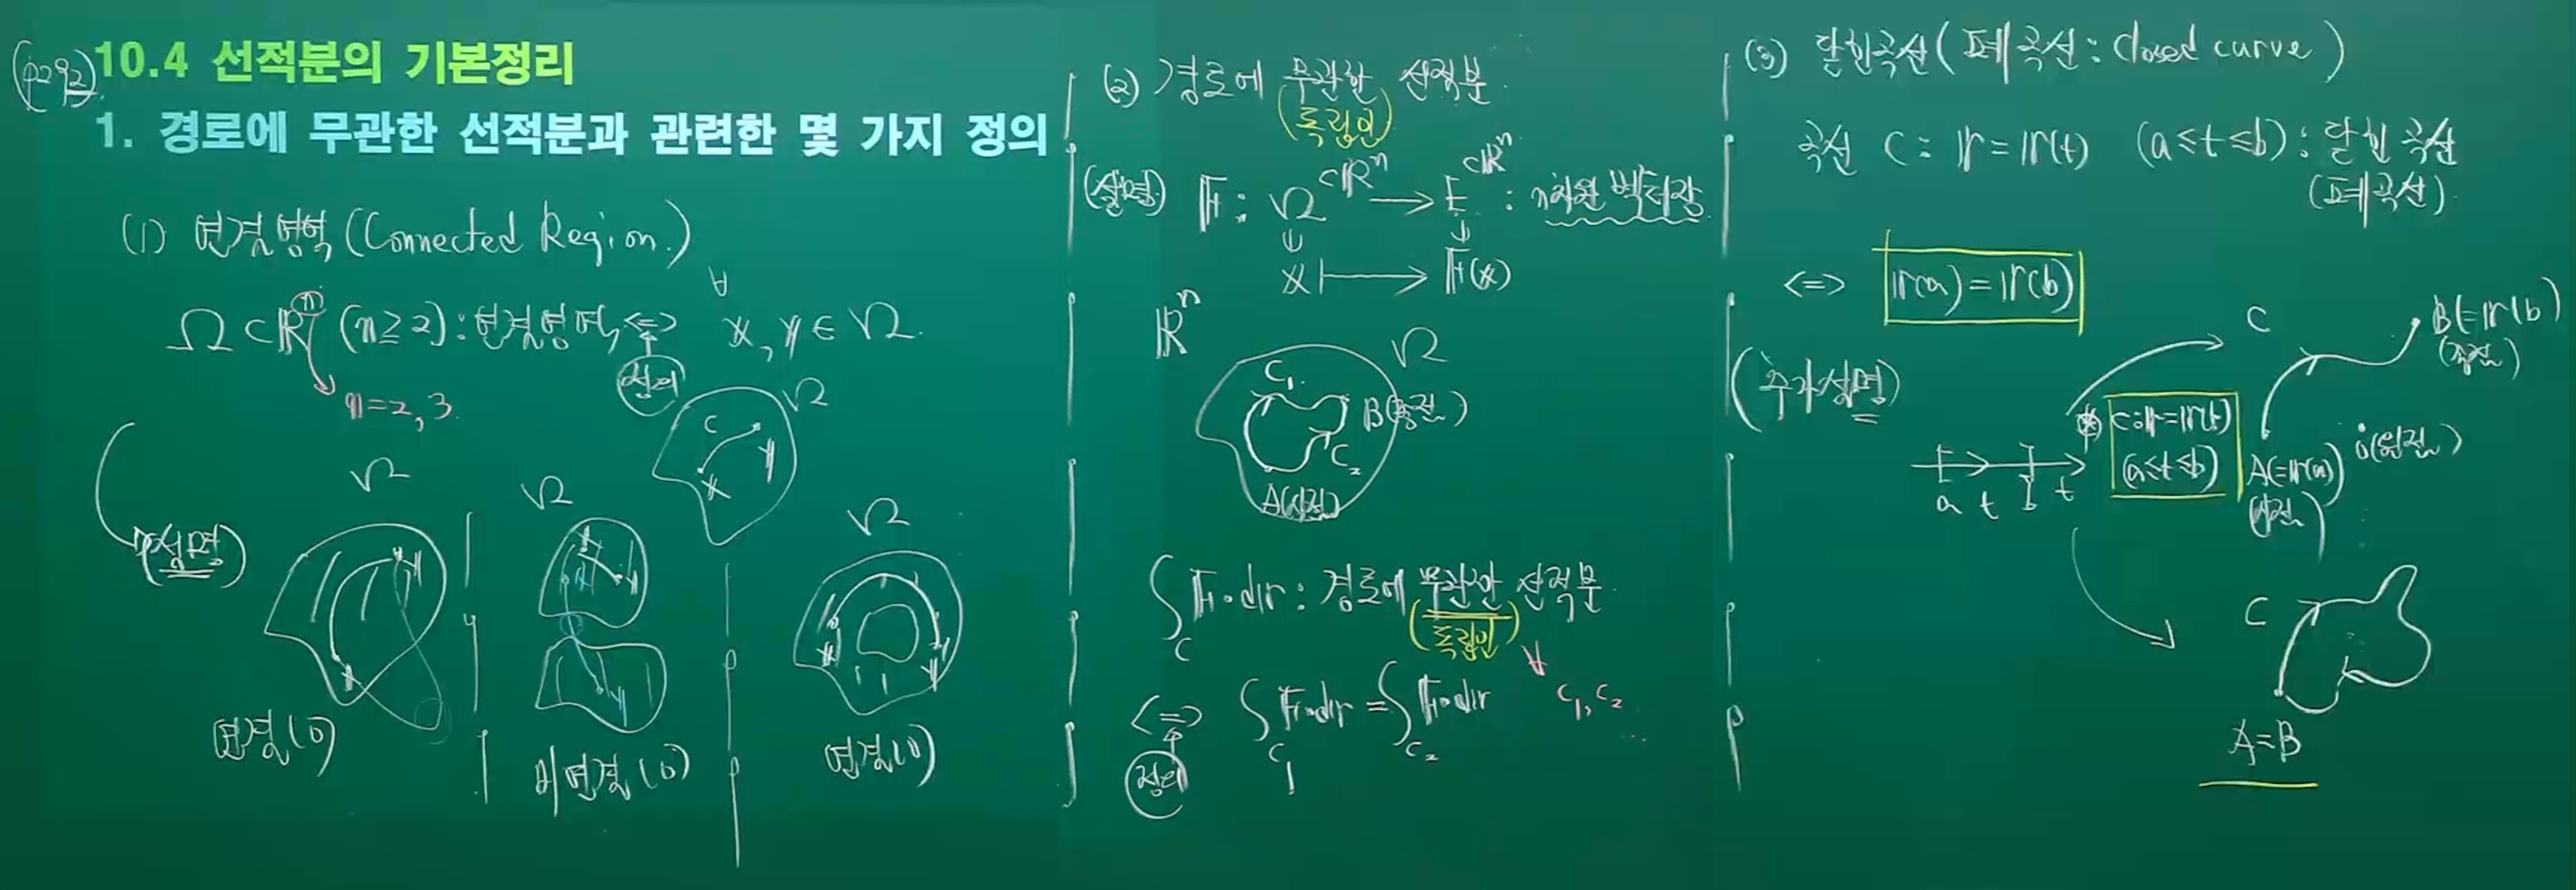 (p292)
10.4 선적분의 기본정리
1. 경로에 무관한 선적분과 관련한 몇 가지 정의
(1) 연결영역 (Connected Region.)
Ω⊂ℝⁿ (n≥2) : 연결영역 <=> ∀ x, y ∈ Ω.
정의
n=2, 3.
Ω
C
x
y
(설명)
Ω
x
y
연결(O)
Ω
x
y
y
비연결(O)
Ω
x
y
연결(O)
(2) 경로에 무관한 선적분.
(독립인)
(설명) F : Ω⊂ℝⁿ → E⊂ℝⁿ : n차원 벡터장
x ↦ F(x)
ℝⁿ
Ω
C₁
B(종점)
C₂
A(시점)
∫_C F·dr : 경로에 무관한 선적분
(독립인)
<=> ∫_C₁ F·dr = ∫_C₂ F·dr ∀ C₁, C₂
정의
(3) 닫힌곡선 (폐곡선 : closed curve)
곡선 C : r = r(t) (a≤t≤b) : 닫힌 곡선
(폐곡선)
<=> r(a) = r(b)
(추가설명)
C
B(=r(b))
(종점)
C : r=r(t)
(a≤t≤b)
A(=r(a))
(시점)
O(원점)
a t b t
C
A=B